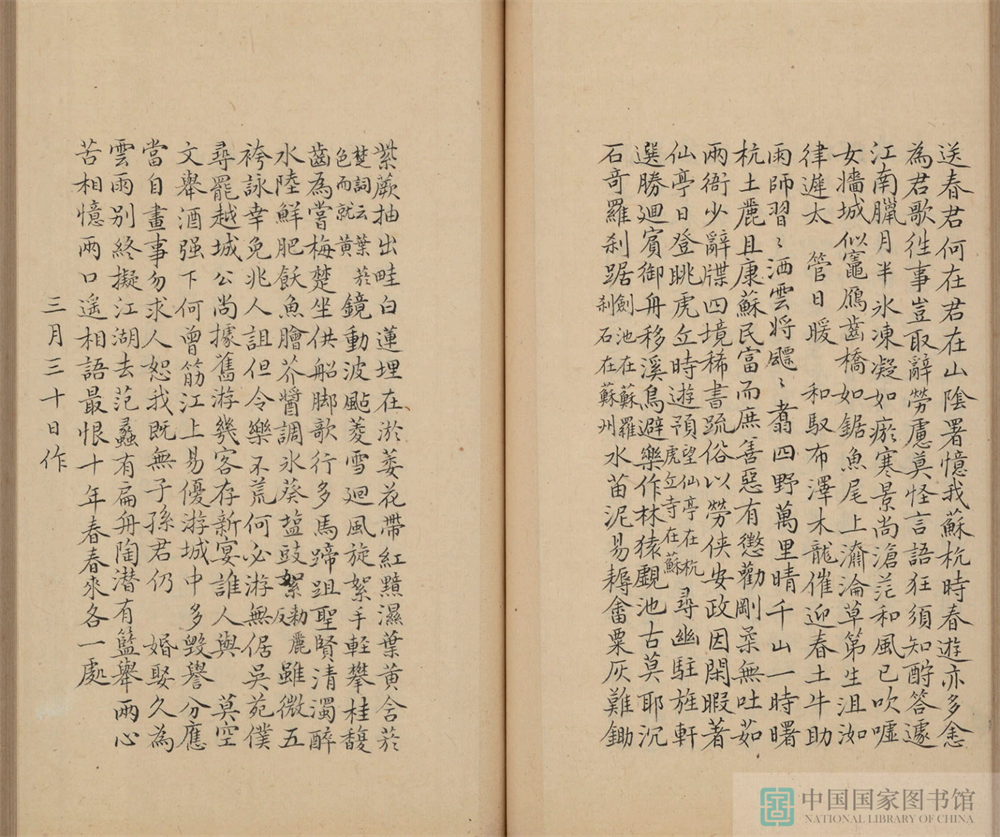 送春君何在君在山陰署憶我蘇杭時春遊亦多悆
為君歌徃事豈取辭勞慮莫怪言語狂須知酧答遽
江南臘月半氷凍凝如瘀寒景尚滄茫和風已吹嘘
女墻城似竈鴈齒橋如鋸魚尾上奫淪草第生沮洳
律遲太 管日暖 和馭布澤木龍催迎春土牛助
雨師習〻洒雲将飃〻翥四野萬里晴千山一時曙
杭土麗且康蘇民富而庶善惡有懲勸剛柔無吐茹
兩衙少辭牒四境稀書疏俗以勞俠安政因閑暇著
仙亭日登眺虎丘時遊預望仙亭在杭虎丘寺在蘇尋幽駐旌軒
選勝迴賓御舟移溪鳥避樂作林猿覷池古莫耶沉
石奇羅刹踞劍池在蘇羅刹石在蘇州水苗泥易耨畬粟灰難鋤
紫蕨抽出畦白蓮埋在淤萎花帶紅黯濕葉黄含菸
楚詞云葉菸色而就黄鏡動波颭菱雪迴風旋絮手輕攀桂馥
齒為嘗梅楚坐供船脚歌行多馬蹄跙聖賢清濁醉
水陸鮮肥飫魚膾芥醬調氷葵塩豉絮勑麗反雖微五
袴詠幸免兆人詛但令樂不荒何必游無倨吳苑僕
尋罷越城公尚據舊游幾客存新宴誰人與 莫空
文舉酒强下何曾筯江上易優游城中多毁譽分應
當自畫事勿求人恕我既無子孫君仍 婚娶久為
雲雨别終擬江湖去范蠡有扁舟陶潜有籃轝兩心
苦相憶兩口遥相語最恨十年春春來各一處
三月三十日作
中国国家图书馆
NATIONAL LIBRARY OF CHINA